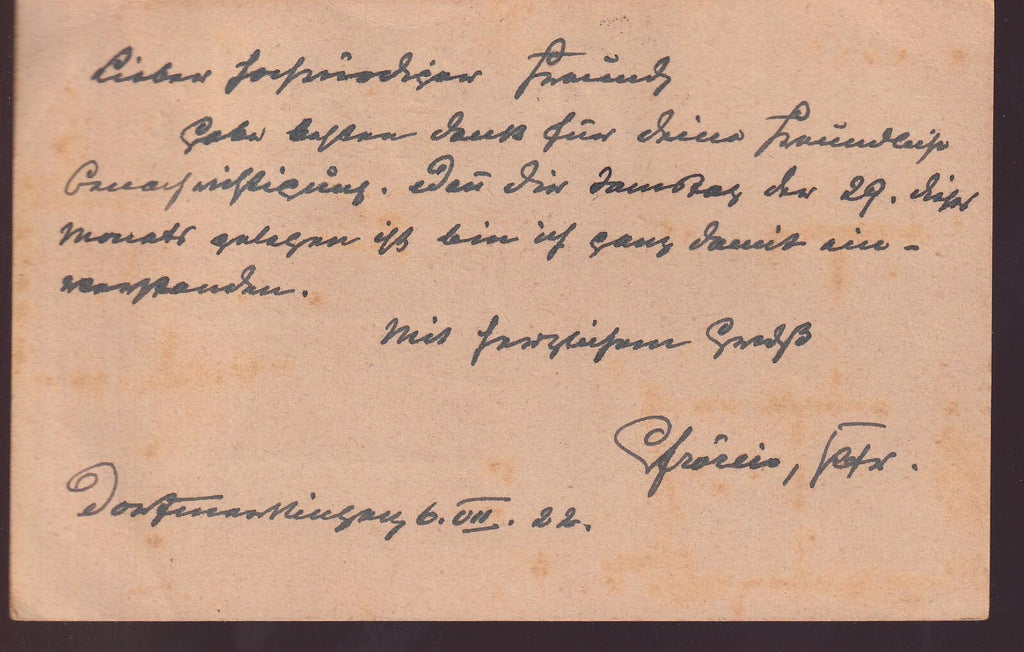 Lieber hochwürdiger Freund
Habe besten Dank für deine freundliche
Benachrichtigung. Wenn dir Samstag der 29. dieses
Monats gelegen ist bin ich ganz damit ein-
verstanden.
Mit herzlichem Gruß
Pfr.
Dorfmerkingen 6. VII. 22.